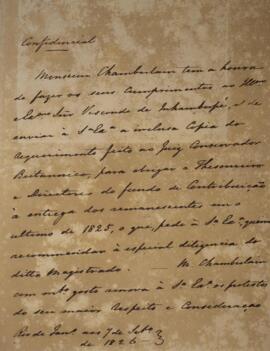 Confidencial
Monsieur Chamberlain tem a honra
de fazer os seus cumprimentos ao Illmo
e Exmo Snr Visconde de Inhambupe, e de
enviar á Sa Exa a inclusa Copia do
Requerimento feito ao Juiz Conservador
Britannico, para obrigar a Thesoureiro
e Directores do fundo de Contribuição
á entrega dos remanescentes em o
ultimo de 1825, o que, pede á Sa Exa queira
recommendar á especial diligencia do
ditto Magistrado. M. Chamberlain
com mto gosto renova á Sa Exa os protestos
do seu maior Respeito e Consideração
Rio de Janro aos 7 de Setbro
de 1826